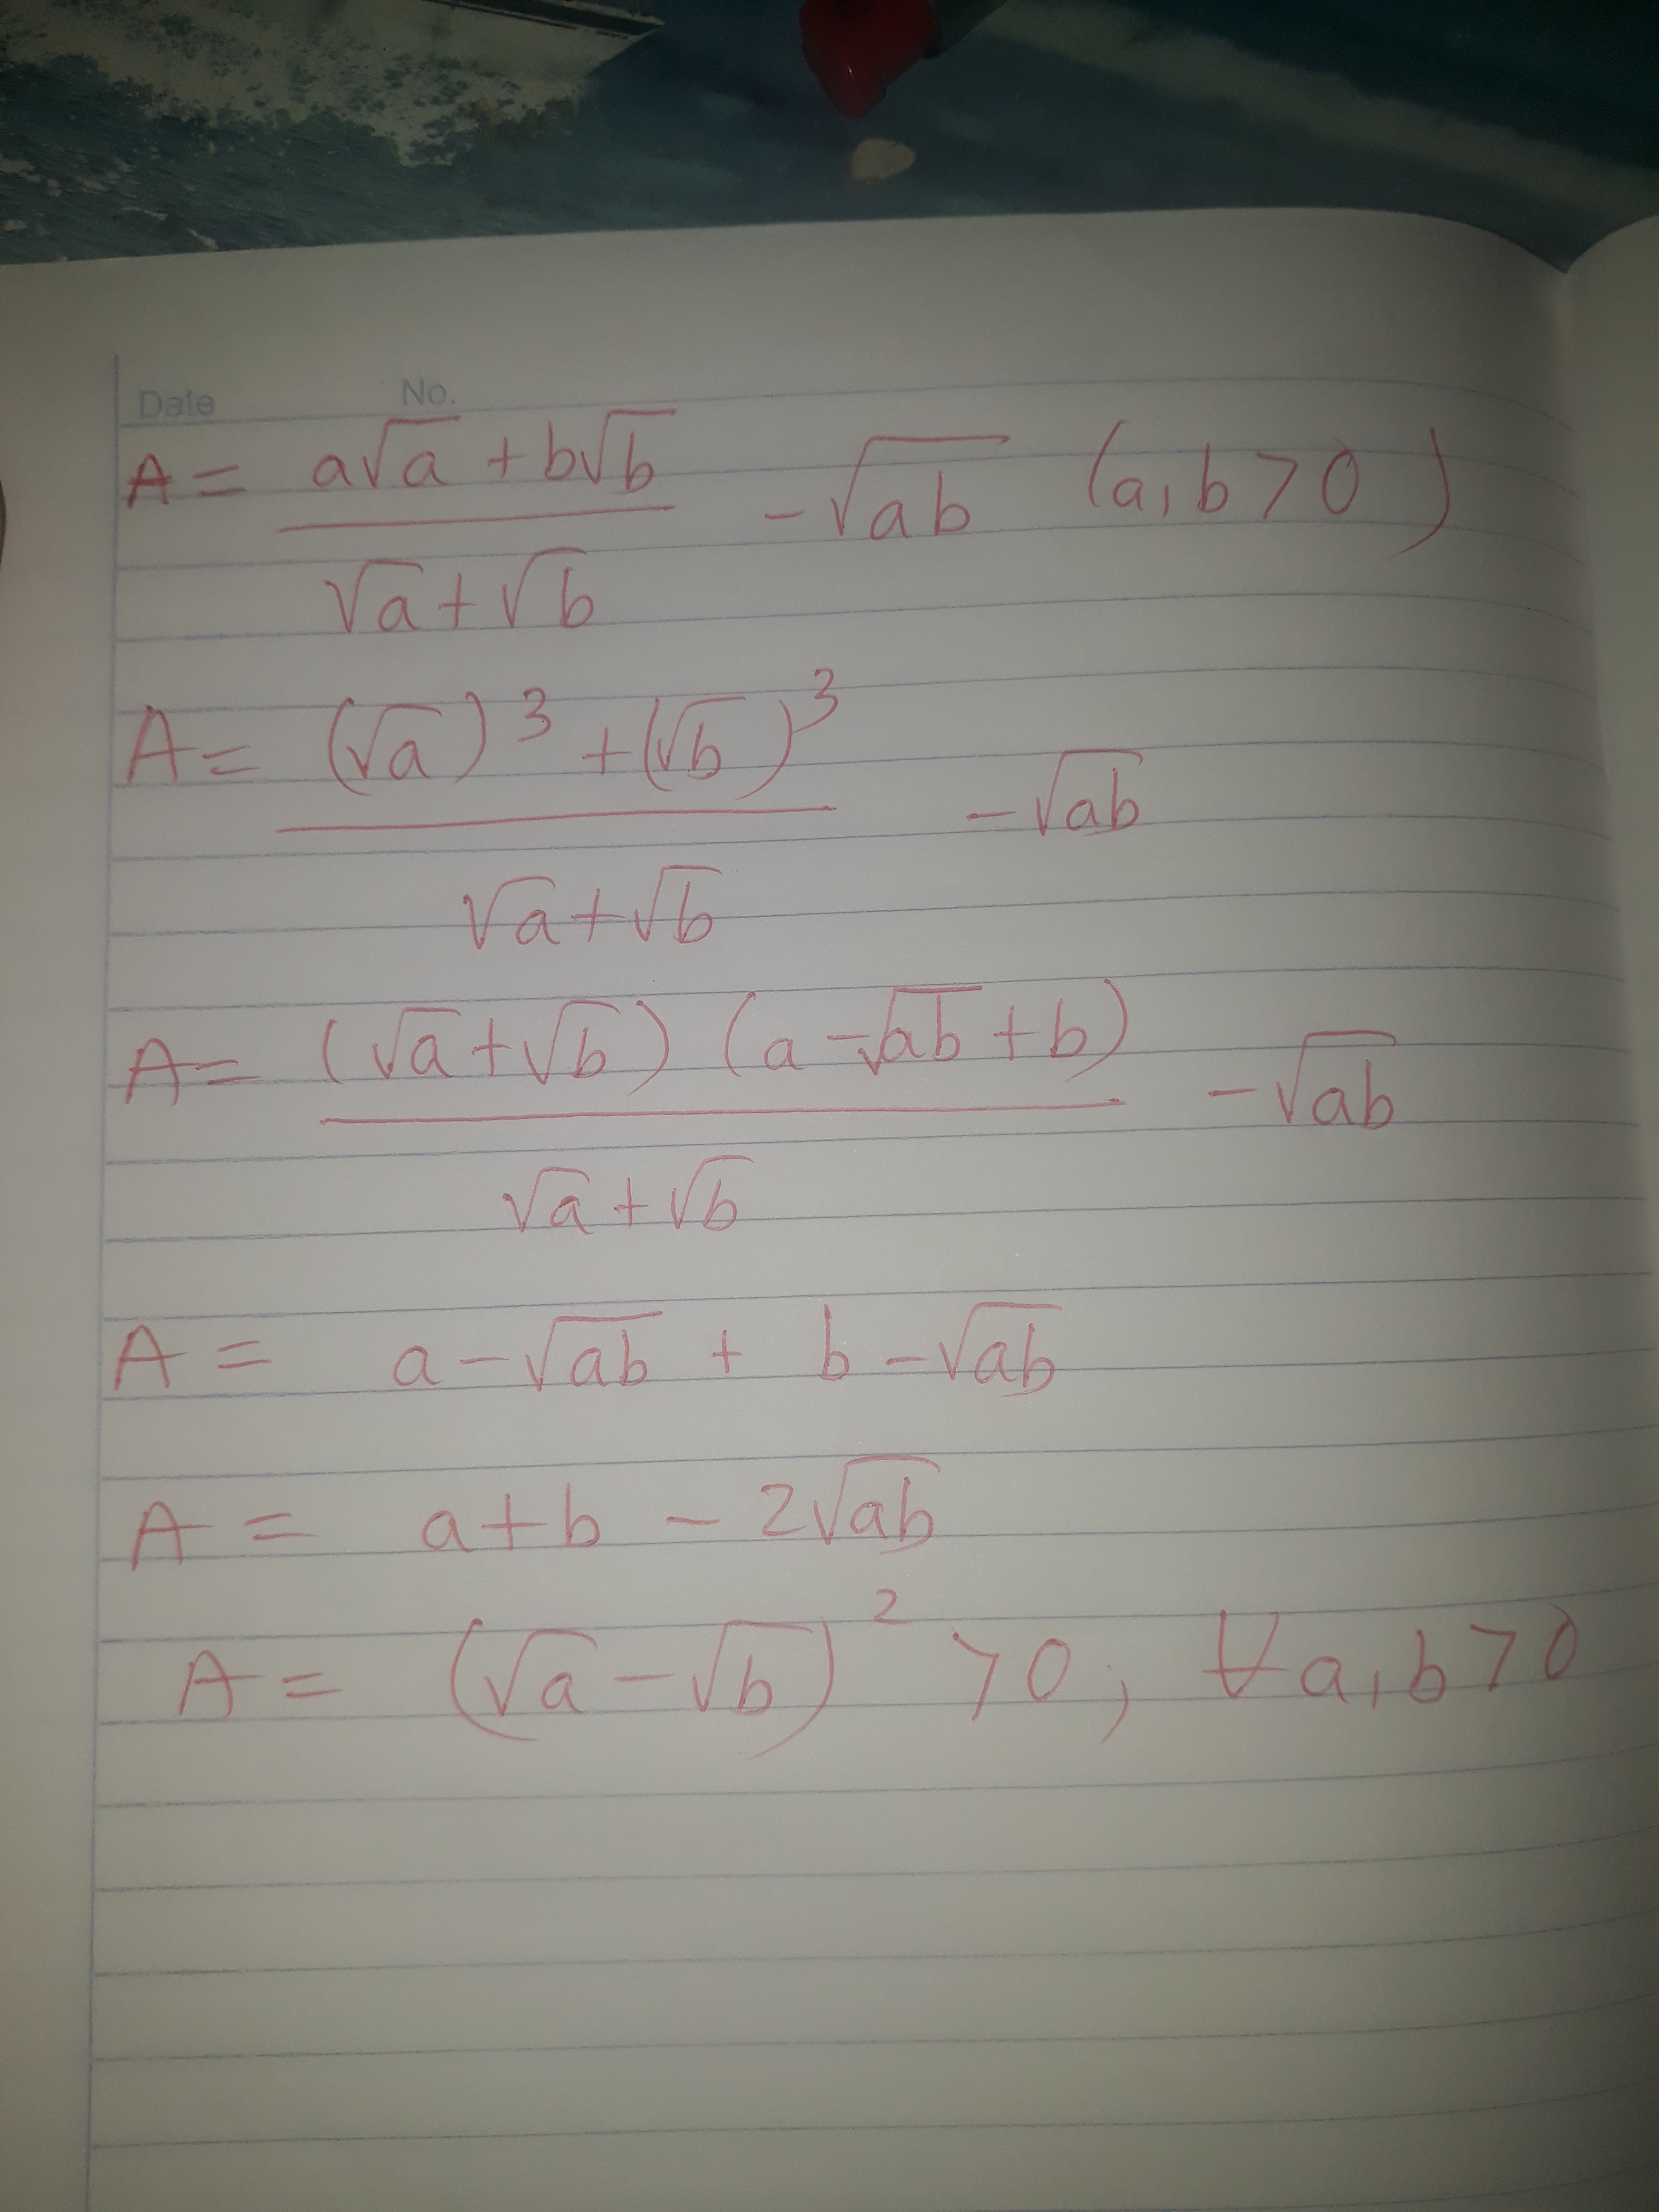 Date No.
A = (a√a + b√b)/(√a + √b) - √ab (a, b > 0)
A = ((√a)³ + (√b)³)/(√a + √b) - √ab
A = ((√a + √b) (a - √ab + b))/(√a + √b) - √ab
A = a - √ab + b - √ab
A = a + b - 2√ab
A = (√a - √b)² > 0, ∀ a, b > 0